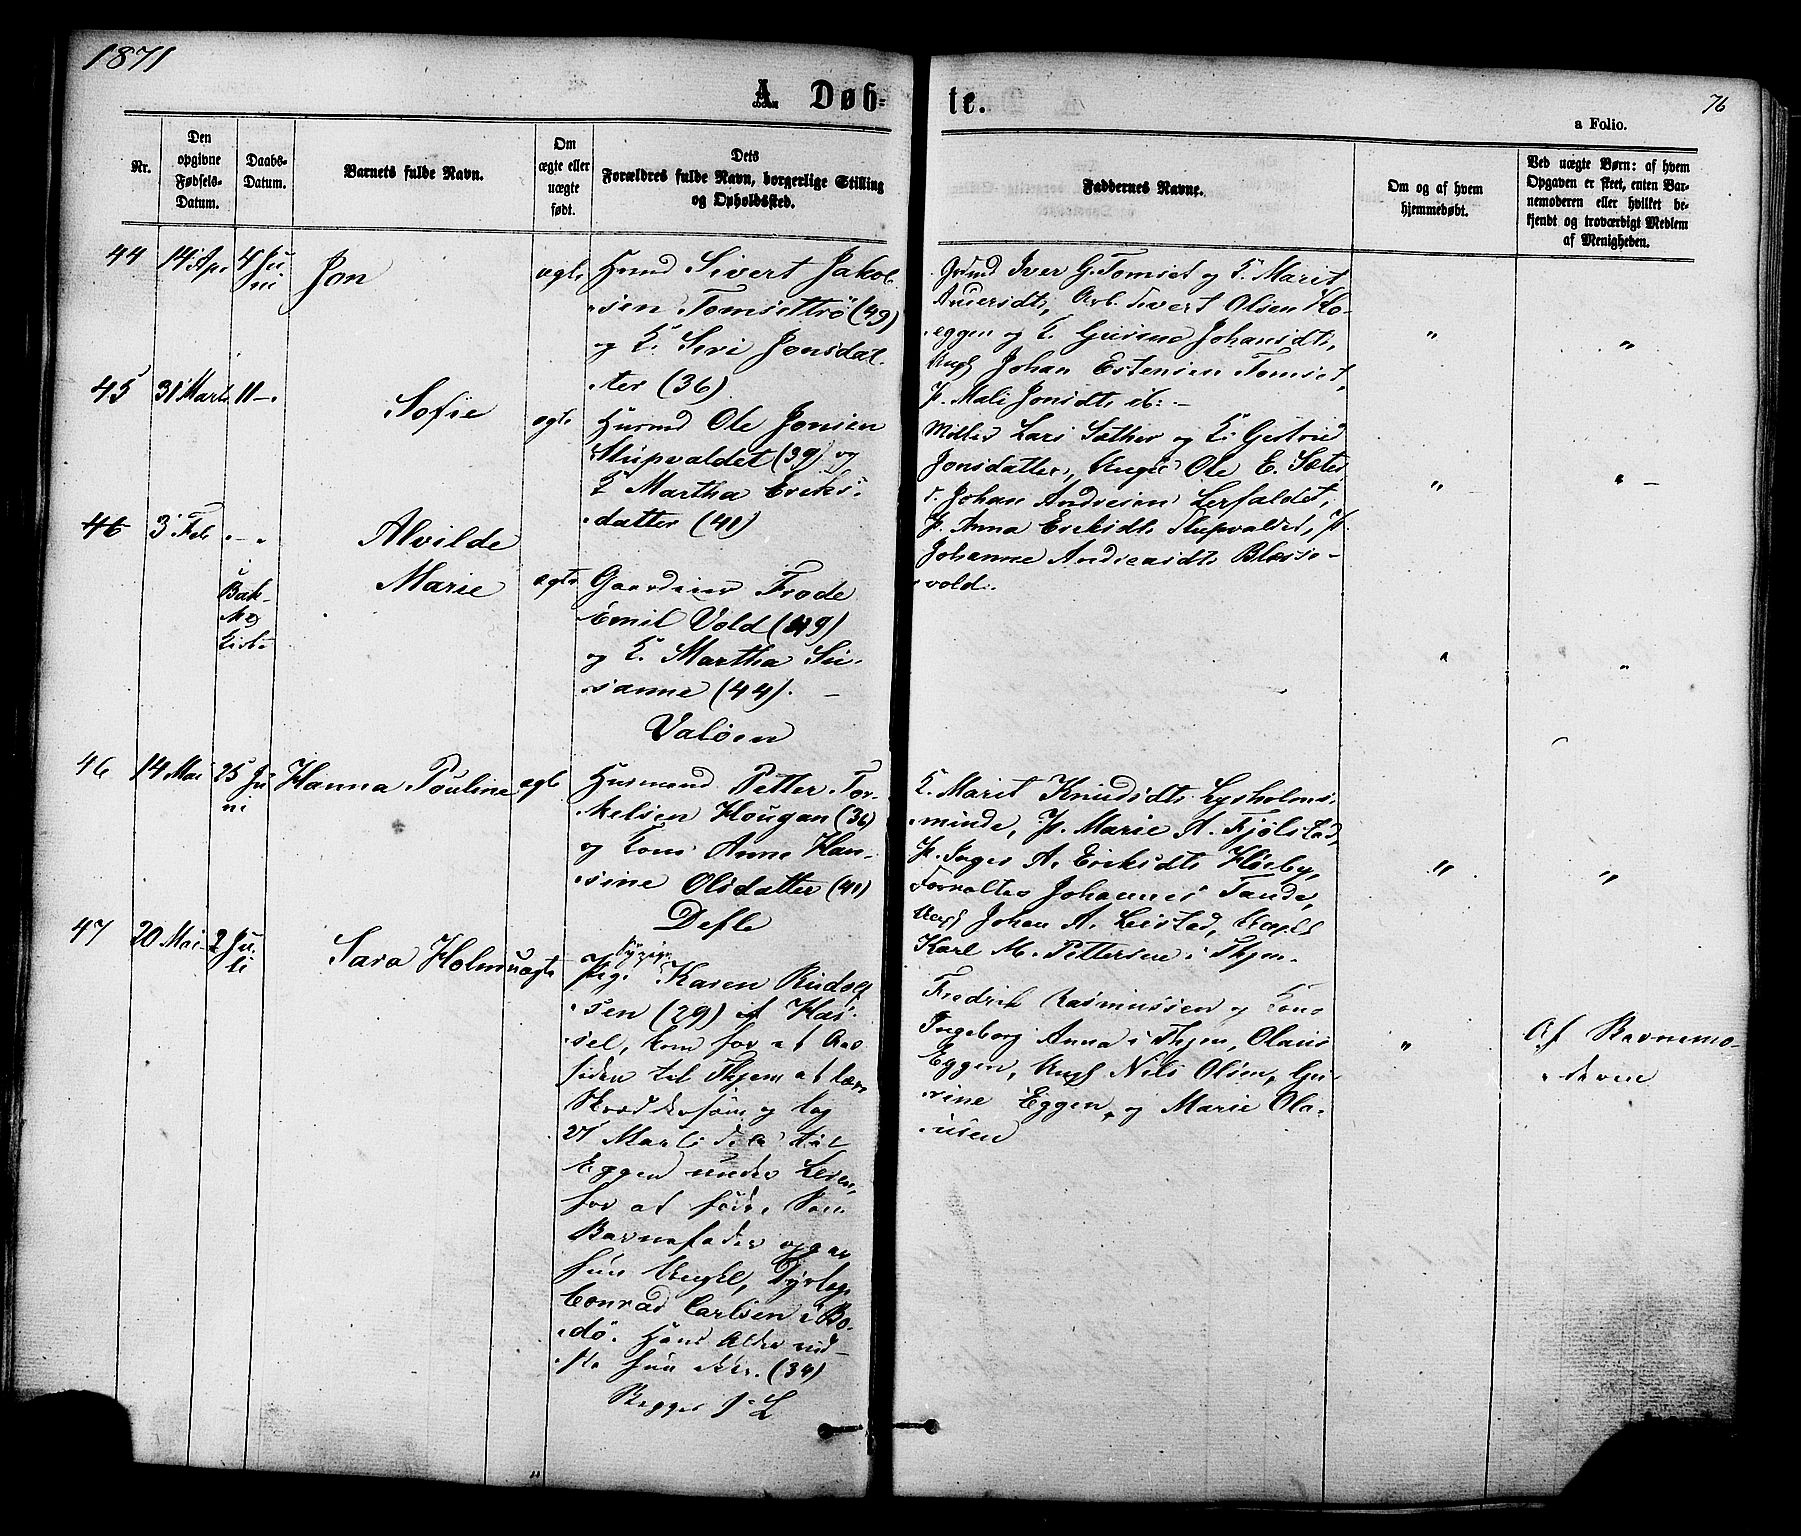 1871
A. Døb=
te.
76
a Folio.
Nr.
Den
opgivne
Fødsels-
Datum.
Daabs-
Datum.
Barnets fulde Navn.
Om
ægte eller
uægte
født.
Dets
Forældres fulde Navn, borgerlige Stilling
og Opholdssted.
Faddernes Navne.
Om og af hvem
hjemmedøbt.
Ved uægte Børn: af hvem
Opgaven er skeet, enten Bar-
nemoderen eller hvilket be-
kjendt og troværdigt Medlem
af Menigheden.
44 14 Apr 4 Ju-
ni
Jon
ægte
Husmd Sivert Jakob-
sen Tomsettrö (49)
og K. Siri Jonsdat-
ter (36)
Iver G. Tomset og K. Marit
Andersdt, Arb. Sivert Olsen Ko-
eggen og K. Gurine Johansdt,
Ungk Johan Estensen Tomset,
P. Mali Jonsdt ib: -
" "
45 31 Marts 11 -
Sofie
ægte
Husmd Ole Jonsen
Stupvaldet (39) og
K Martha Eriks-
datter (41)
Möller Lars Sæther og K. Gjertrud
Jonsdatter, Ungk Ole E. Sæter
Johan Andresen Lerfaldet,
P. Anna Eriksdt Stupvaldet, P.
Johanne Andreasdt Blæsse-
vold.
" " -
46 3 Feb " - "
Bak-
ke
Kirke
Alvilde
Marie
ægte
Gaardeier Frode
Emil Vold (49)
og K. Martha Su-
sanne (44). -
Valöen
" "
46 14 Mai 25 Ju
ni
Hanna Pouline
ægte
Husmand Petter Tor-
kelsen Hougan (36)
og Kone Anne Han-
sine Olsdatter (41)
Defle
K. Marit Knudsdt Lysholms-
minde, P. Marie A. Fjölstad,
P. Inger A. Eriksdt Höiby,
Forvalter Johannes Tande,
Ungk Johan A. Leistad, Ungk
Karl M. Pettersen i Thjem.
" "
47 20 Mai 2 Ju-
li
Sara Holm
uægte
Pige Karen Rudolf
sen (29) af Has-
sel, kom for at
siden til Thjem at lære
Skræddersöm og log
21 Marts til
Eggen under Leren,
for at föde. Som
Barnefader opgav
hun Ungkl,
Conrad Carlsen i Bo-
dö. Hans Alder vid-
ste hun ikke. (34)
Begges 1ste L
Fredrik Rasmussen og Kone
Ingeborg Anna i Thjem, Olaus
Eggen, Ungk Nils Olsen, Gu-
rine Eggen, og Marie Ola-
usen
"
Af Barnemo-
deren